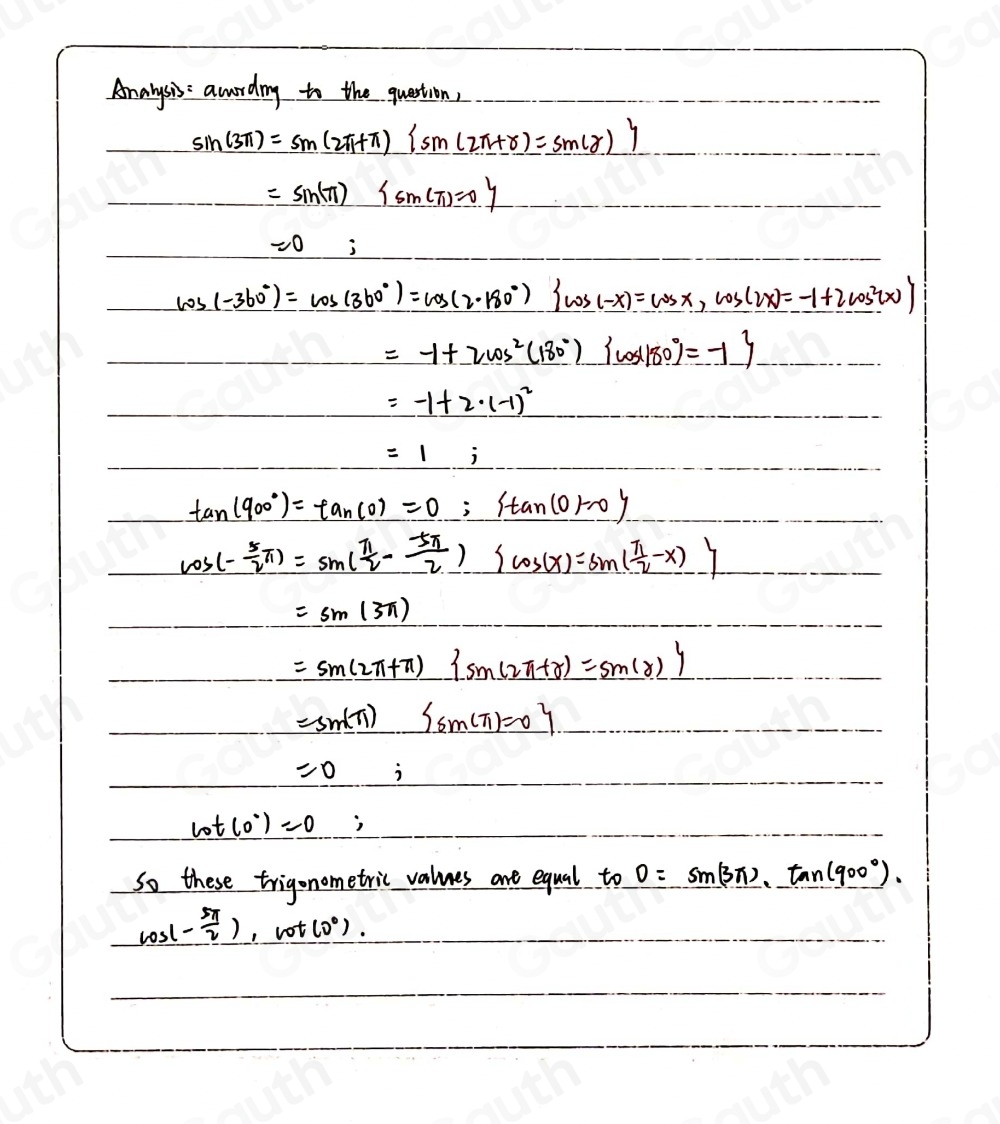 Analysis: according to the question,
sin(3π) = sin(2π+π) {sin(2π+γ)=sin(γ)}
= sin(π) {sin(π)=0}
=0 ;
cos(-360°) = cos(360°) = cos(2·180°) {cos(-x)=cosx, cos(2x)=-1+2cos²(x)}
= -1+2cos²(180°) {cos(180°)=-1}
= -1+2·(-1)²
= 1 ;
tan(900°) = tan(0) =0 ; {tan(0)=0}
cos(-5/2π) = sin(π/2 - -5π/2) {cos(x)=sin(π/2-x)}
= sin(3π)
= sin(2π+π) {sin(2π+γ)=sin(γ)}
=sin(π) {sin(π)=0}
=0 ;
cot(0°) =0 ;
So these trigonometric values are equal to 0: sin(3π)、tan(900°).
cos(-5π/2), cot(0°).
Gauth